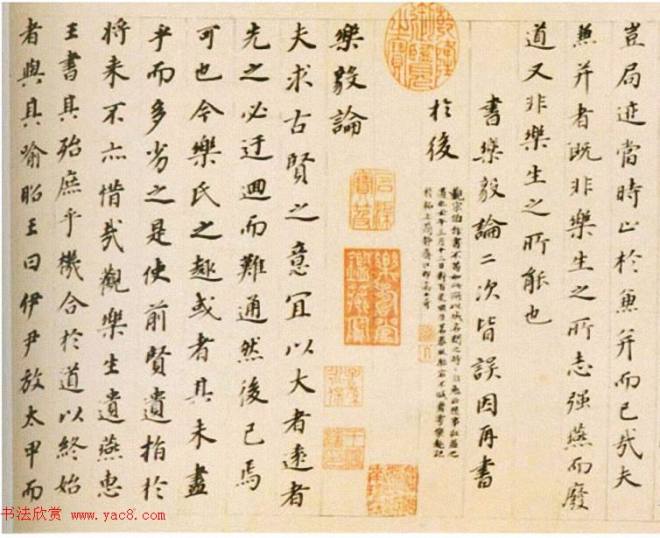 豈局迹當時止於兼并而已哉夫
兼并者既非樂生之所志强燕而廢
道又非樂生之所能也
書樂毅論二次皆誤因再書
於後
樂毅論
夫求古賢之意宜以大者遠者
先之必迂迴而難通然後已焉
可也今樂氏之趣或者其未盡
乎而多劣之是使前賢遺指於
將来不亦惜哉觀樂生遺燕惠
王書其殆庶乎機合於道以終始
者與其喻昭王曰伊尹放太甲而
书法欣赏 www.yac8.com